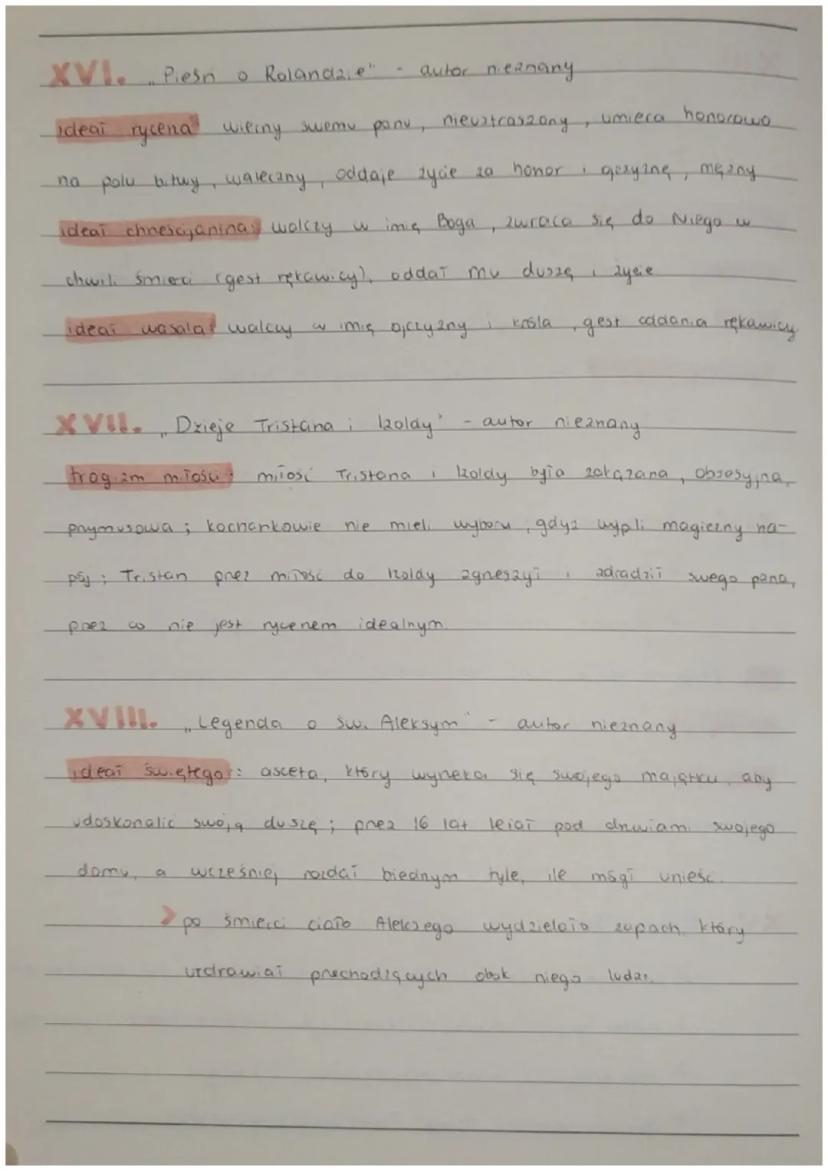 XVI. „Pieśń o Rolandzie" - autor nieznany
ideał rycerza: wierny swemu panu, nieustraszony, umiera honorowo
na polu bitwy, waleczny, oddaje życie za honor i ojczyznę, mężny
ideał chrześcijanina: walczy w imię Boga, zwraca się do Niego w
chwili śmierci (gest rękawicy), oddał mu duszę i życie
ideał wasala: walczy w imię ojczyzny i króla, gest oddania rękawicy
XVII. „Dzieje Tristana i Izoldy" - autor nieznany
tragizm miłości: miłość Tristana i Izoldy była zakazana, obsesyjna,
przymusowa; kochankowie nie mieli wyboru, gdyż wypili magiczny na-
pój; Tristan przez miłość do Izoldy zgrzeszył i zdradził swego pana,
przez co nie jest rycerzem idealnym.
XVIII. „Legenda o św. Aleksym" - autor nieznany
ideał świętego: asceta, który wyrzeka się swojego majątku, aby
udoskonalić swoją duszę; przez 16 lat leżał pod drzwiami swojego
domu, a wcześniej rozdał biednym tyle, ile mógł unieść.
> po śmierci ciało Aleksego wydzielało zapach, który
uzdrawiał przechodzących obok niego ludzi.